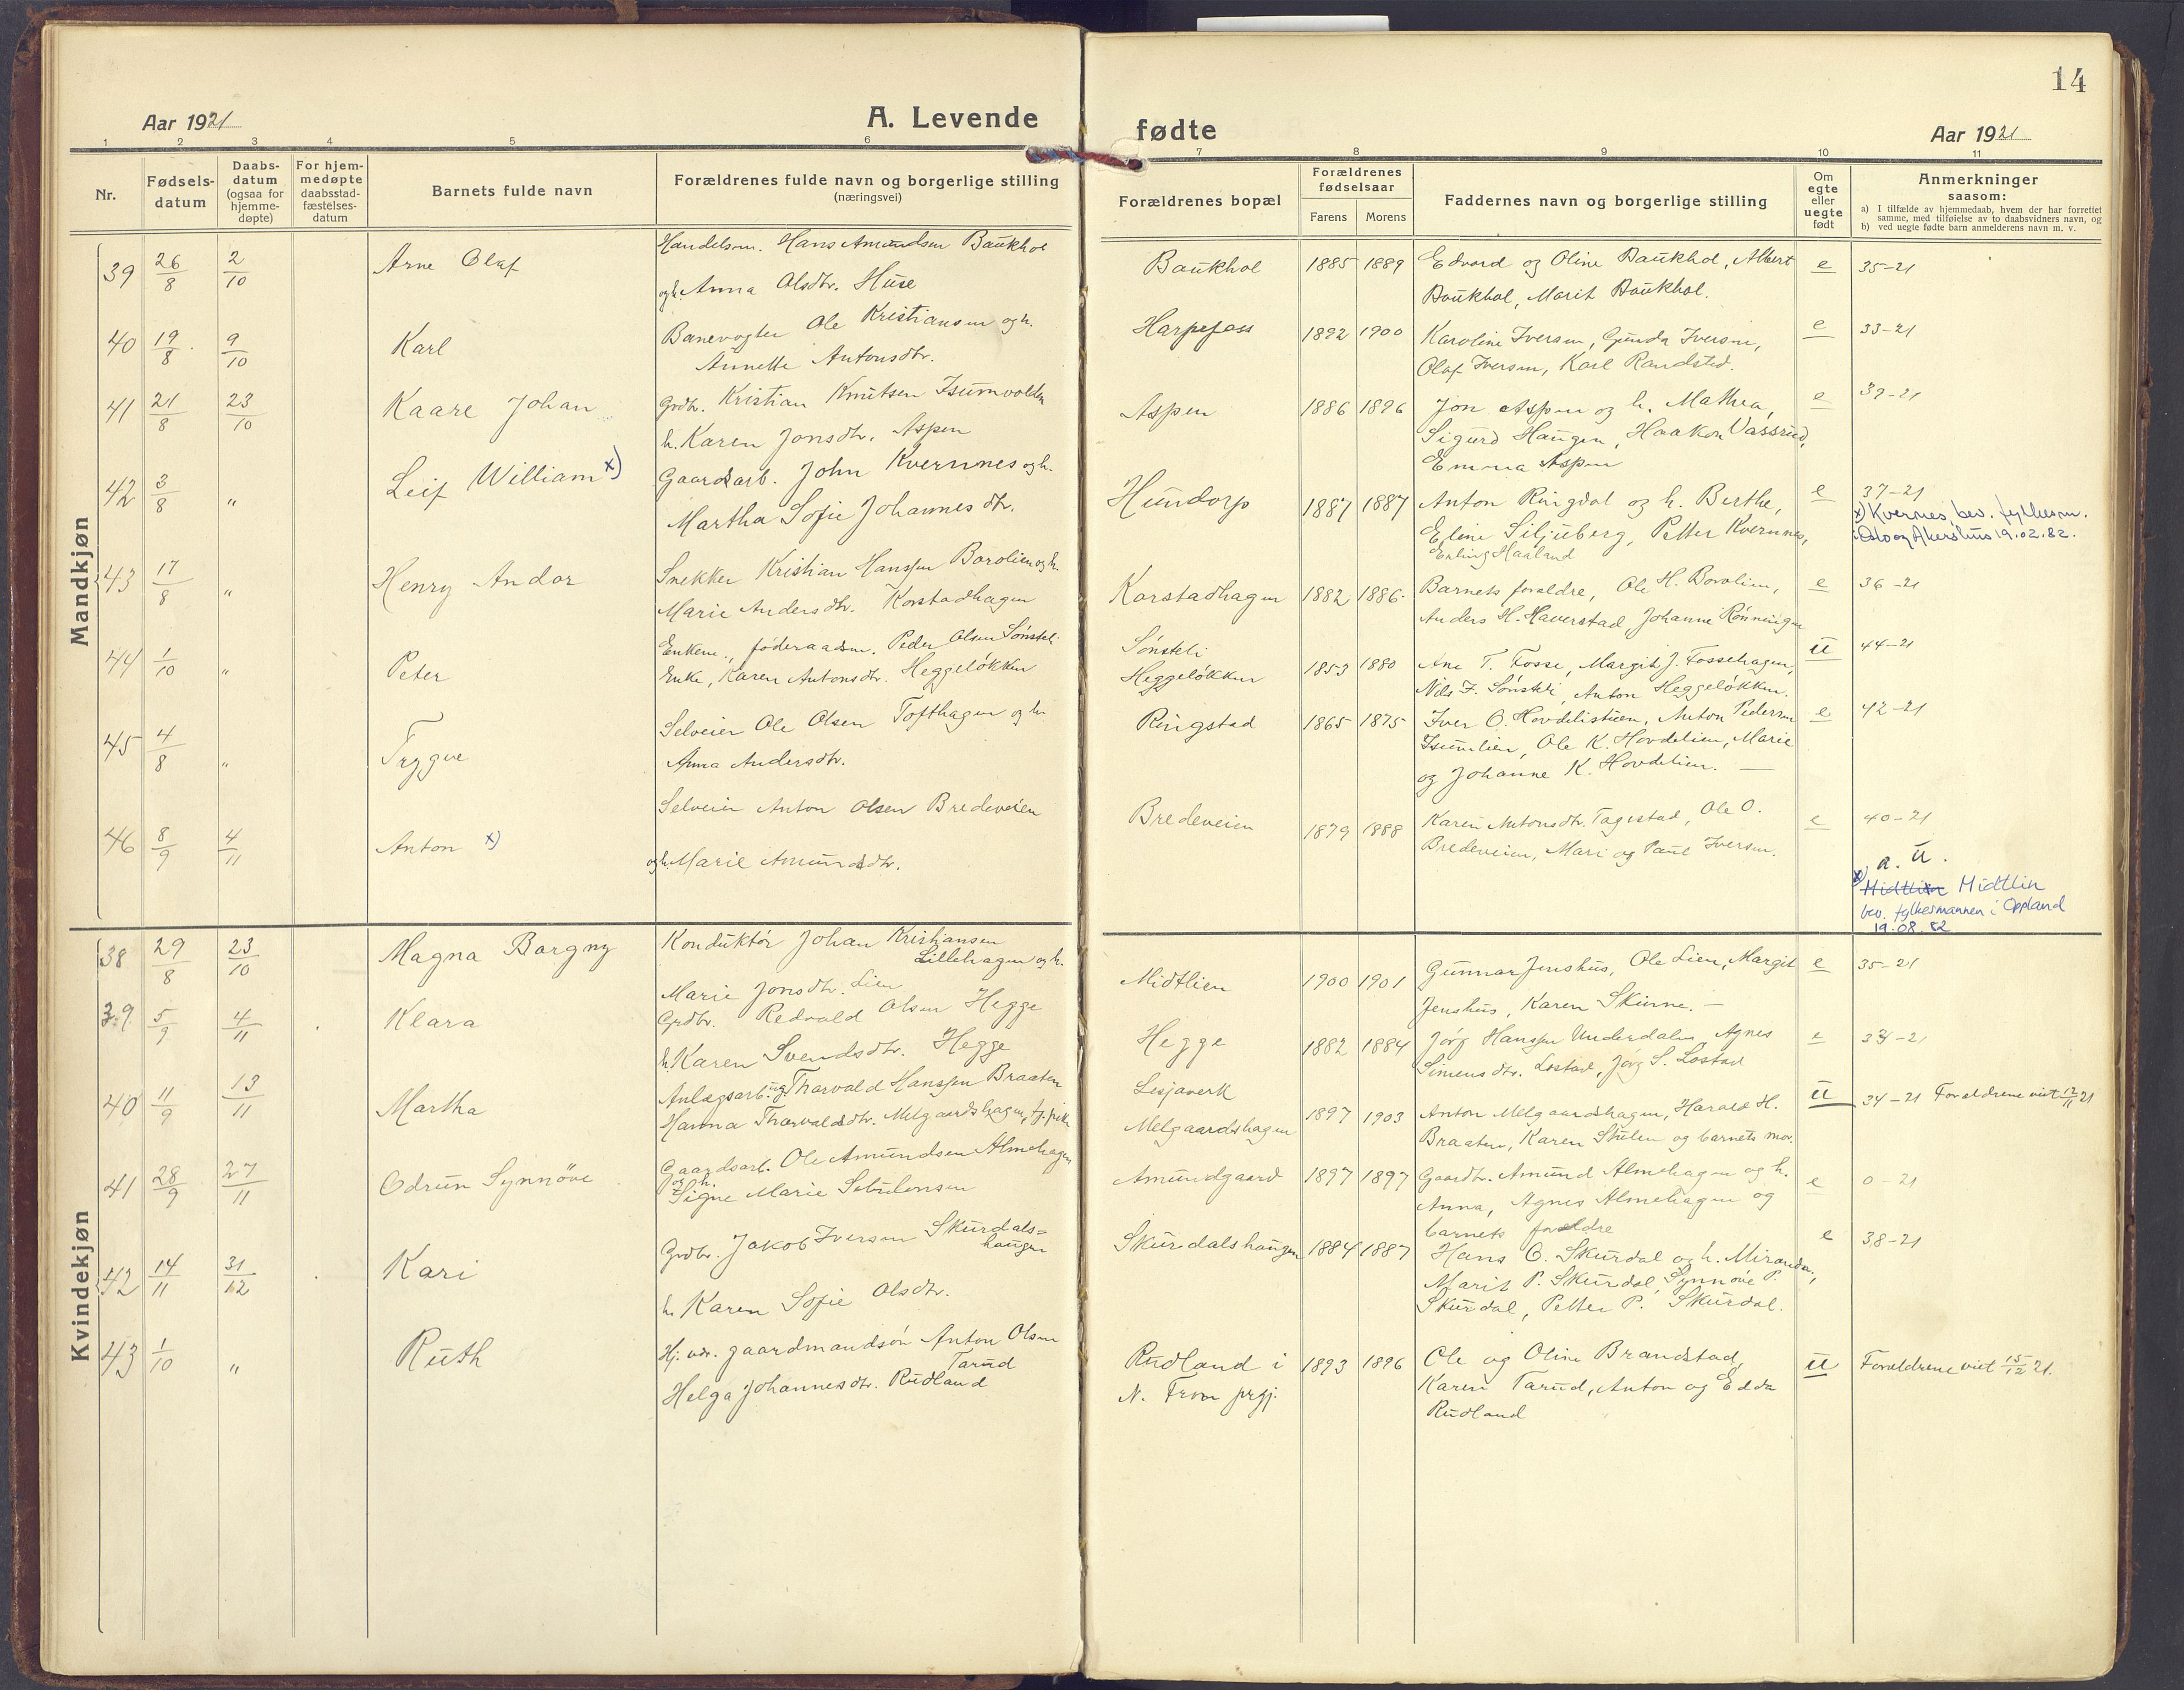 14
Aar 1921
A. Levende
fødte
Aar 1921
1 2 3 4 5 6 7 8 9 10 11
Nr.
Fødsels-
datum
Daabs-
datum
(ogsaa for
hjemme-
døpte)
For hjem-
medøpte
daabsstad-
fæstelses-
datum
Barnets fulde navn
Forældrenes fulde navn og borgerlige stilling
(næringsvei)
Forældrenes bopæl
Forældrenes
fødselsaar
Farens Morens
Faddernes navn og borgerlige stilling
Om
egte
eller
uegte
født
Anmerkninger
saasom:
a) I tilfælde av hjemmedaab, hvem der har forrettet
samme, med tilføielse av to daabsvidners navn, og
b) ved uegte fødte barn anmelderens navn m. v.
Mandkjøn
39 26/8 2/10 Arne Olaf
Handelsm. Hans Amundsen Baukhol
og h. Anna Olsdtr. Huse
Baukhol 1885 1889
Edvard og Oline Baukhol, Albert
Baukhol, Marit Baukhol.
e 35-21
40 19/8 9/10 Karl
Banevogter Ole Kristiansen og h.
Annette Antonsdtr.
Harpefoss 1892 1900
Karoline Iversen, Gunda Iversen,
Olaf Iversen, Karl Randsted.
e 33-21
41 21/8 23/10 Kaare Johan
Grdbr. Kristian Knutsen Isumvolden
h. Karen Jonsdtr. Aspen
Aspen 1886 1896
Jon Aspen og h. Mathea,
Sigurd Haugen, Haakon Vassrud,
Emma Aspen
e 39-21
42 3/8 " Leif William x)
Gaardsarb. John Kvernnes og h.
Martha Sofie Johannesdtr.
Hundorp 1887 1887
Anton Ringdal og h. Berthe,
Eline Siljuberg, Petter Kvernnes,
Erling Haaland
e 37-21
x) Kvernes bev. fylkesm.
i Oslo og Akershus 19.02.82.
43 17/8 " Henry Andor
Snekker Kristian Hanssen Borolien og h.
Marie Andersdtr. Korstadhagen
Korstadhagen 1882 1886
Barnets forældre, Ole H. Borolien,
Anders H. Haverstad, Johanne Rønningen
e 36-21
44 1/10 " Peter
Enkem., føderaadsm. Peder Olsen Sønsteli
Enke, Karen Antonsdtr. Heggeløkken
Sønsteli
Heggeløkken 1853 1880
Ane T. Fosse, Margit J. Fossehagen,
Nils F. Sønsteli, Anton Heggeløkken.
u 44-21
45 4/8 " Trygve
Selveier Ole Olsen Tofthagen og h.
Anna Andersdtr.
Ringstad 1865 1875
Iver O. Hovdelistuen, Anton Pedersen
Isumlien, Ole K. Hovdelien, Marie
og Johanne K. Hovdelien. —
e 42-21
46 8/9 4/11 Anton x)
Selveier Anton Olsen Bredeveien
og h. Marie Amundsdtr.
Bredeveien 1879 1888
Karen Antonsdtr. Tagestad, Ole O.
Bredeveien, Mari og Paul Iversen.
e 40-21
a. u.
x) Midtlien Midtlin
bev. fylkesmannen i Oppland
19.08.82
Kvindekjøn
38 29/8 23/10 Magna Borgny
Konduktør Johan Kristiansen
Lillehagen og h.
Marie Jonsdtr. Lien
Midtlien 1900 1901
Gunnar Jenshus, Ole Lien, Margit
Jenshus, Karen Skurne. —
e 35-21
39 5/9 4/11 Klara
Grdbr. Redvald Olsen Hegge
h. Karen Svendsdtr. Hegge
Hegge 1882 1884
Jørg Hanssen Underdalen, Agnes
Simensdtr. Lostad, Jørg S. Lostad
e 33-21
40 11/9 13/11 Martha
Anlægsarb. ug. Tharvald Hanssen Braaten
Hanna Thorvaldsdtr. Melgaardshagen, tj.pike
Lesjaverk
Melgaardshagen 1897 1903
Anton Melgaardshagen, Harald H.
Braaten, Karen Stulen og barnets mor.
u 34-21 Forældrene viet 12/11 21
41 28/9 27/11 Odrun Synnöve
Gaardsarb. Ole Amundsen Almehagen
og h.
Signe Marie Sebulonsen
Amundgaard 1897 1897
Gaardbr. Amund Almehagen og h.
Anna, Agnes Almehagen og
barnets forældre
e 0-21
42 14/11 31/12 Kari
Grdbr. Jakob Iversen Skurdals=
haugen
h. Karen Sofie Olsdtr.
Skurdalshaugen 1884 1887
Hans O. Skurdal og h. Miranda,
Marit P. Skurdal, Synnøve P.
Skurdal, Petter P. Skurdal.
e 38-21
43 1/10 " Ruth
Hj. vær. gaardmandsøn Anton Olsen
Tarud
Helga Johannesdtr. Rudland
Rudland i
N. Fron prgj. 1893 1896
Ole og Oline Brandstad,
Karen Tarud, Anton og Edda
Rudland
u Forældrene viet 15/12 21.